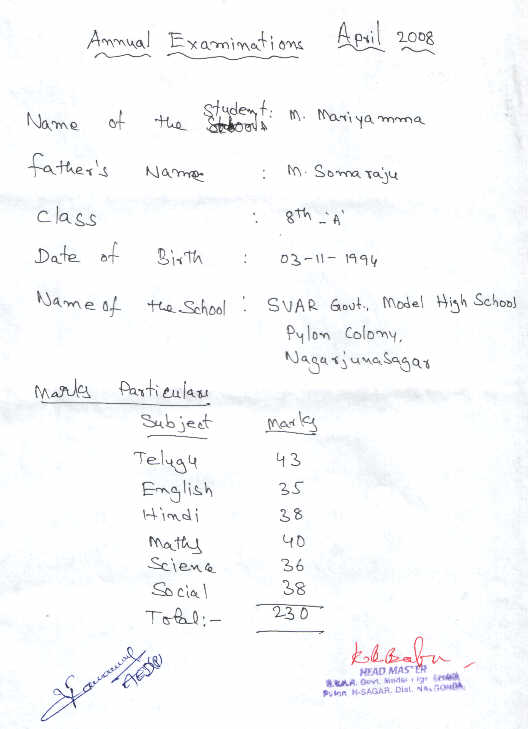 Annual Examinations April 2008
Name of the Student: M. Mariyamma
Father's Name : M. Somaraju
Class : 8th -'A'
Date of Birth : 03-11-1994
Name of the School : SVAR Govt., Model High School
Pylon Colony,
Nagarjunasagar
Marks Particulars
Subject Marks
Telugu 43
English 35
Hindi 38
Maths 40
Science 36
Social 38
Total:- 230
HEAD MASTER
Govt. Model High
Pylon N-SAGAR, Dist. NALGONDA